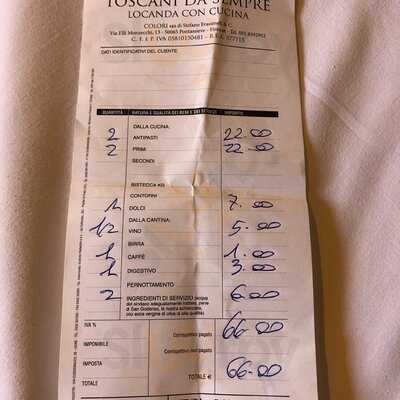 TOSCANI DA SEMPRE
LOCANDA CON CUCINA
COLORI sas di Stefano Frassineti & C.
Via F.lli Monzecchi, 13 - 50065 Pontassieve - Firenze - Tel.
C. F. e P. IVA 05810150481 - R.E.A. 577715
DATI IDENTIFICATIVI DEL CLIENTE
QUANTITÀ NATURA E QUALITÀ DEI BENI E DEI SERVIZI IMPORTO
DALLA CUCINA:
2 ANTIPASTI 22.00
2 PRIMI 22.00
SECONDI
BISTECCA KG
CONTORNI
1 DOLCI 7.00
DALLA CANTINA:
1/2 VINO 5.00
BIRRA
1 CAFFÈ 1.00
1 DIGESTIVO 3.00
PERNOTTAMENTO
2 INGREDIENTI DI SERVIZIO (acqua 6.00
del sindaco adeguatamente trattata, pane
di San Godenzo, la nostra schiacciata,
olio extra vergine di oliva di alta qualità)
IVA % Corrispettivo pagato 66.00
IMPONIBILE Corrispettivo non pagato
IMPOSTA
TOTALE TOTALE € 66.00